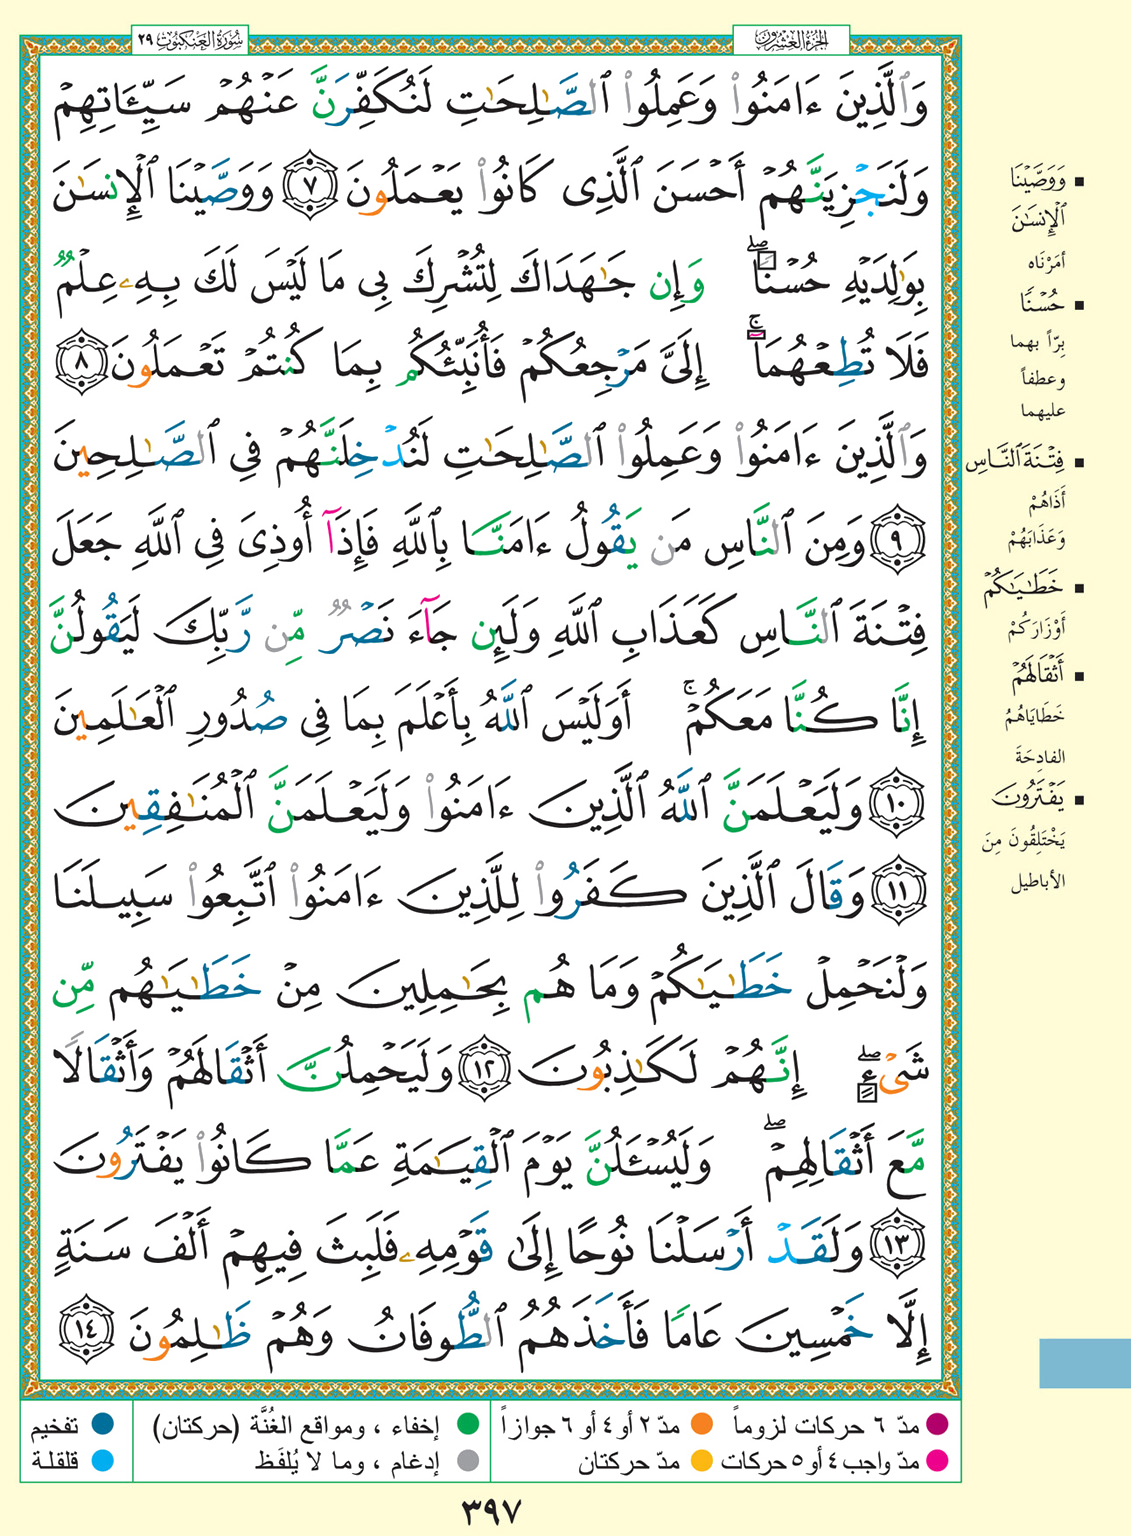 الجزء العشرون
سورة العنكبوت ٢٩
وَٱلَّذِينَ ءَامَنُوا۟ وَعَمِلُوا۟ ٱلصَّـٰلِحَـٰتِ لَنُكَفِّرَنَّ عَنْهُمْ سَيِّـَٔاتِهِمْ
وَلَنَجْزِيَنَّهُمْ أَحْسَنَ ٱلَّذِى كَانُوا۟ يَعْمَلُونَ ٧ وَوَصَّيْنَا ٱلْإِنسَـٰنَ
بِوَٰلِدَيْهِ حُسْنًا ۖ وَإِن جَـٰهَدَاكَ لِتُشْرِكَ بِى مَا لَيْسَ لَكَ بِهِۦ عِلْمٌ
فَلَا تُطِعْهُمَآ ۚ إِلَىَّ مَرْجِعُكُمْ فَأُنَبِّئُكُم بِمَا كُنتُمْ تَعْمَلُونَ ٨
وَٱلَّذِينَ ءَامَنُوا۟ وَعَمِلُوا۟ ٱلصَّـٰلِحَـٰتِ لَنُدْخِلَنَّهُمْ فِى ٱلصَّـٰلِحِينَ
٩ وَمِنَ ٱلنَّاسِ مَن يَقُولُ ءَامَنَّا بِٱللَّهِ فَإِذَآ أُوذِىَ فِى ٱللَّهِ جَعَلَ
فِتْنَةَ ٱلنَّاسِ كَعَذَابِ ٱللَّهِ وَلَئِن جَآءَ نَصْرٌ مِّن رَّبِّكَ لَيَقُولُنَّ
إِنَّا كُنَّا مَعَكُمْ ۚ أَوَلَيْسَ ٱللَّهُ بِأَعْلَمَ بِمَا فِى صُدُورِ ٱلْعَـٰلَمِينَ
١٠ وَلَيَعْلَمَنَّ ٱللَّهُ ٱلَّذِينَ ءَامَنُوا۟ وَلَيَعْلَمَنَّ ٱلْمُنَـٰفِقِينَ
١١ وَقَالَ ٱلَّذِينَ كَفَرُوا۟ لِلَّذِينَ ءَامَنُوا۟ ٱتَّبِعُوا۟ سَبِيلَنَا
وَلْنَحْمِلْ خَطَـٰيَـٰكُمْ وَمَا هُم بِحَـٰمِلِينَ مِنْ خَطَـٰيَـٰهُم مِّن
شَىْءٍ ۖ إِنَّهُمْ لَكَـٰذِبُونَ ١٢ وَلَيَحْمِلُنَّ أَثْقَالَهُمْ وَأَثْقَالًا
مَّعَ أَثْقَالِهِمْ ۖ وَلَيُسْـَٔلُنَّ يَوْمَ ٱلْقِيَـٰمَةِ عَمَّا كَانُوا۟ يَفْتَرُونَ
١٣ وَلَقَدْ أَرْسَلْنَا نُوحًا إِلَىٰ قَوْمِهِۦ فَلَبِثَ فِيهِمْ أَلْفَ سَنَةٍ
إِلَّا خَمْسِينَ عَامًا فَأَخَذَهُمُ ٱلطُّوفَانُ وَهُمْ ظَـٰلِمُونَ ١٤
وَوَصَّيْنَا
ٱلْإِنسَـٰنَ
أمَرْنَاه
حُسْنًا
بِرّاً بهما
وعطفاً
عليهما
فِتْنَةَ ٱلنَّاسِ
أَذَاهُمْ
وَعَذَابَهُمْ
خَطَـٰيَـٰكُمْ
أَوْزَارَكُمْ
أَثْقَالَهُمْ
خَطَايَاهُمُ
الفادِحَةَ
يَفْتَرُونَ
يَخْتَلِقُونَ مِنَ
الأباطيل
مدّ ٦ حركات لزوماً مدّ ٢ أو ٤ أو ٦ جوازاً إخفاء ، ومواقع الغُنَّة (حركتان) تفخيم
مدّ واجب ٤ أو ٥ حركات مدّ حركتان إدغام ، وما لا يُلفَظ قلقلة
٣٩٧